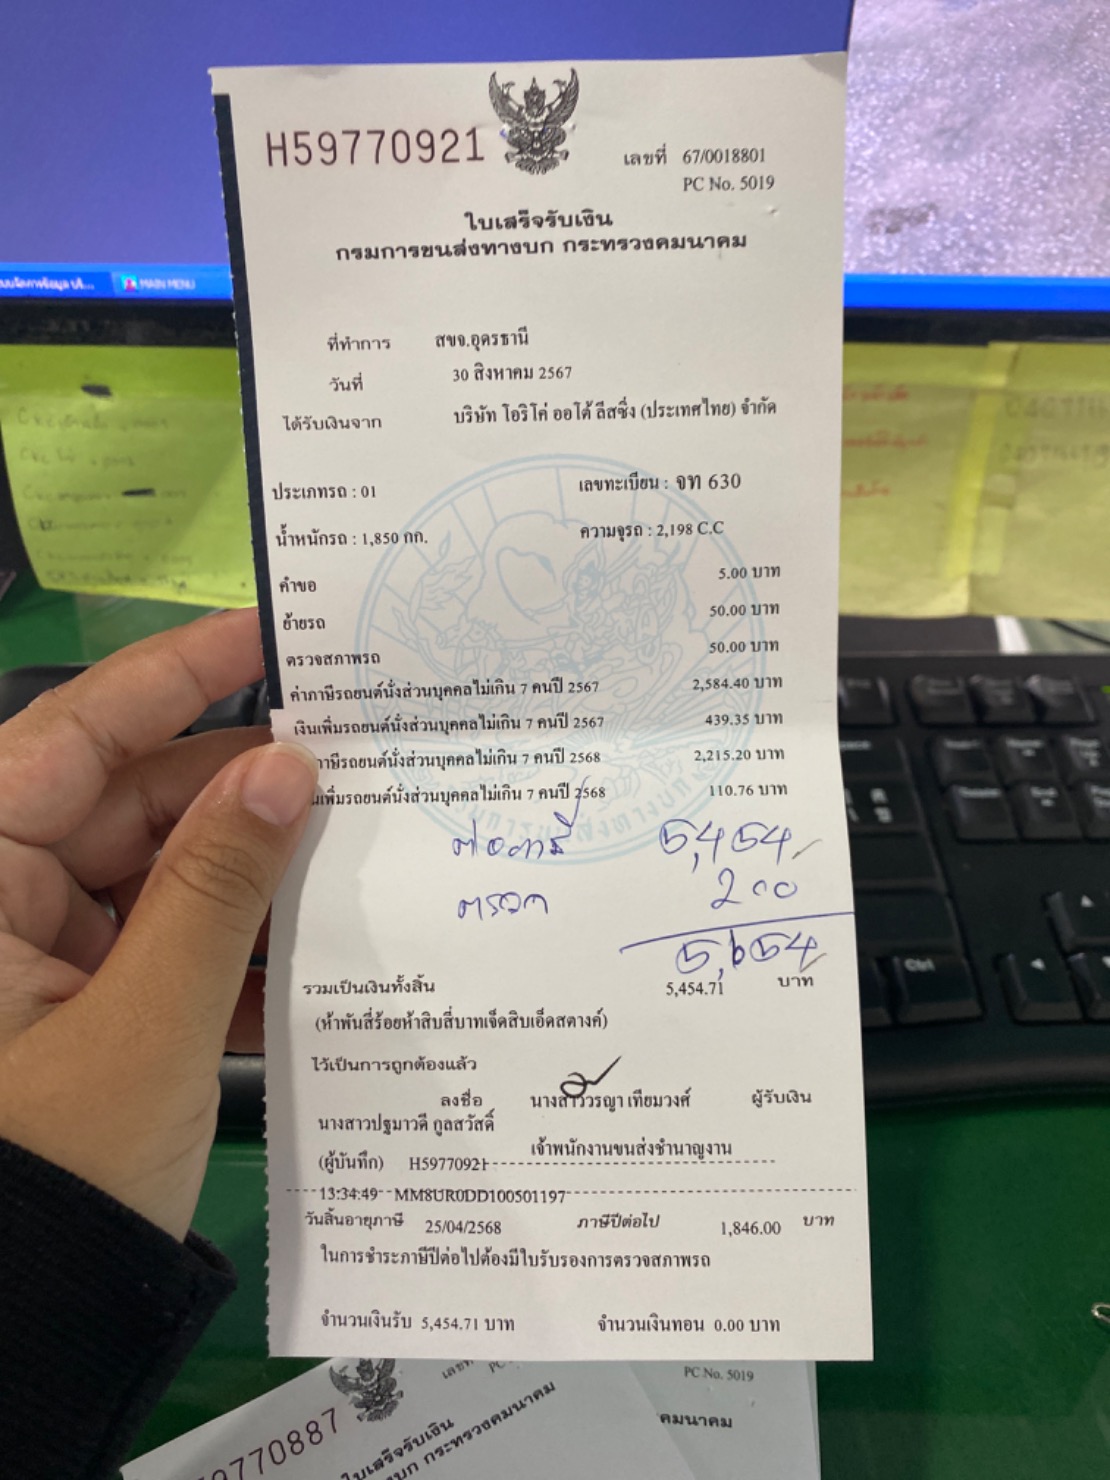 MAIN MENU
H59770921
เลขที่ 67/0018801
PC No. 5019
ใบเสร็จรับเงิน
กรมการขนส่งทางบก กระทรวงคมนาคม
ที่ทำการ สขจ.อุดรธานี
วันที่ 30 สิงหาคม 2567
ได้รับเงินจาก บริษัท โอริโค่ ออโต้ ลีสซิ่ง (ประเทศไทย) จำกัด
ประเภทรถ : 01 เลขทะเบียน : จท 630
น้ำหนักรถ : 1,850 กก. ความจุรถ : 2,198 C.C
คำขอ 5.00 บาท
ย้ายรถ 50.00 บาท
ตรวจสภาพรถ 50.00 บาท
ค่าภาษีรถยนต์นั่งส่วนบุคคลไม่เกิน 7 คนปี 2567 2,584.40 บาท
เงินเพิ่มรถยนต์นั่งส่วนบุคคลไม่เกิน 7 คนปี 2567 439.35 บาท
ภาษีรถยนต์นั่งส่วนบุคคลไม่เกิน 7 คนปี 2568 2,215.20 บาท
เพิ่มรถยนต์นั่งส่วนบุคคลไม่เกิน 7 คนปี 2568 110.76 บาท
ต่อภาษี 5,454
ตรวจ 200
5,654
รวมเป็นเงินทั้งสิ้น 5,454.71 บาท
(ห้าพันสี่ร้อยห้าสิบสี่บาทเจ็ดสิบเอ็ดสตางค์)
ไว้เป็นการถูกต้องแล้ว
ลงชื่อ นางสาววรญา เทียมวงศ์ ผู้รับเงิน
นางสาวปฐมาวดี กูลสวัสดิ์
เจ้าพนักงานขนส่งชำนาญงาน
(ผู้บันทึก) H59770921
13:34:49 MM8UR0DD100501197
วันสิ้นอายุภาษี 25/04/2568 ภาษีปีต่อไป 1,846.00 บาท
ในการชำระภาษีปีต่อไปต้องมีใบรับรองการตรวจสภาพรถ
จำนวนเงินรับ 5,454.71 บาท จำนวนเงินทอน 0.00 บาท
PC No. 5019
9770887
เลขที่
ใบเสร็จรับเงิน
คมนาคม
บก กระทรวงคมนาคม